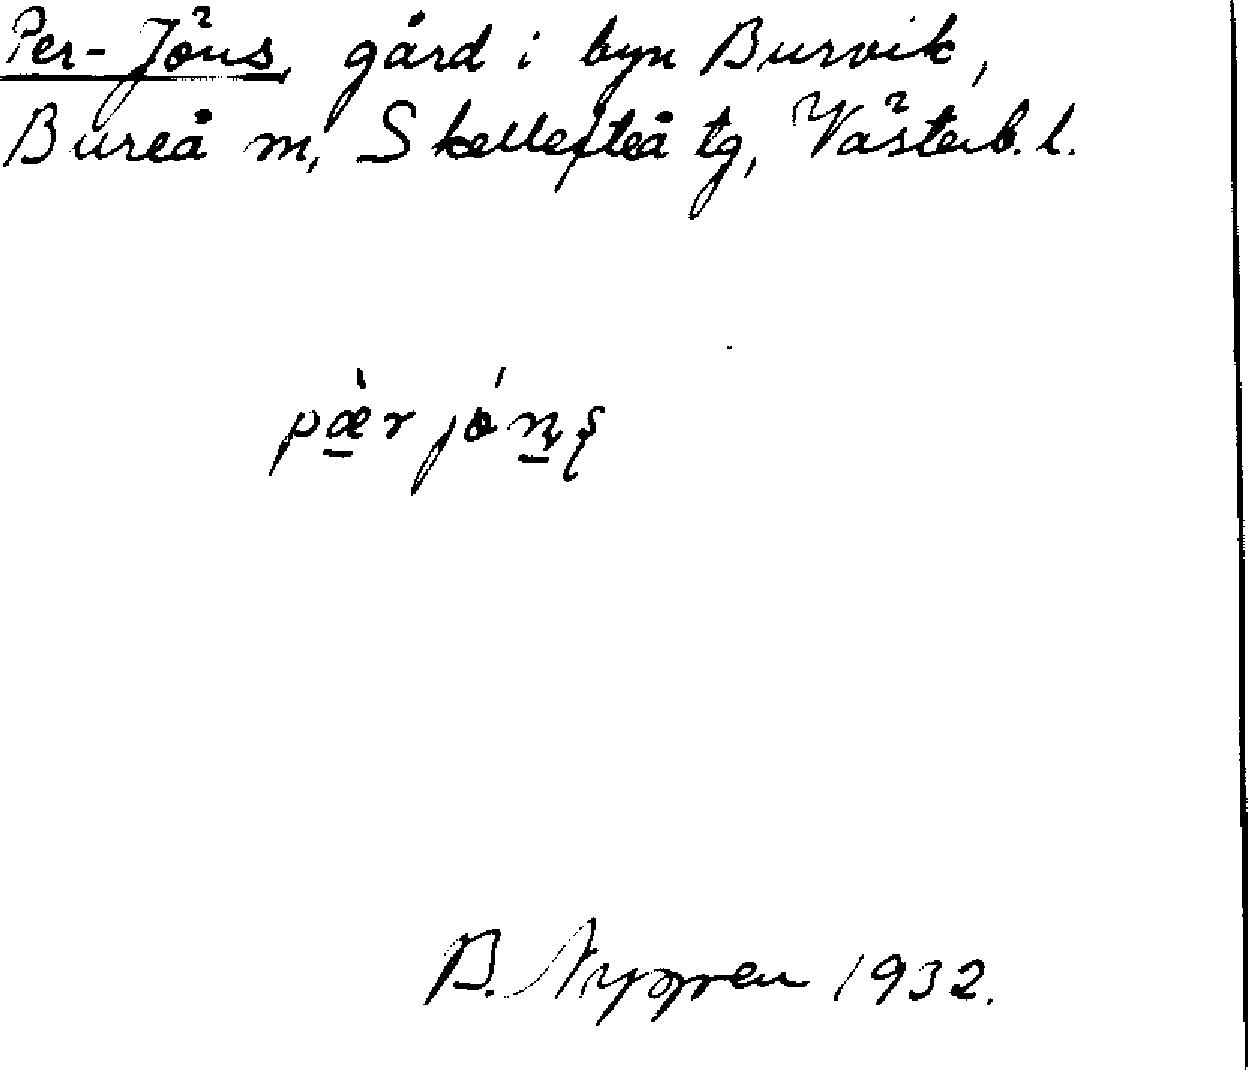 Per-Jöns, gård i byn Burvik,
Bureå m, Skellefteå tg, Västerb. l.
pæ̀r jónş
B. Nygren 1932.